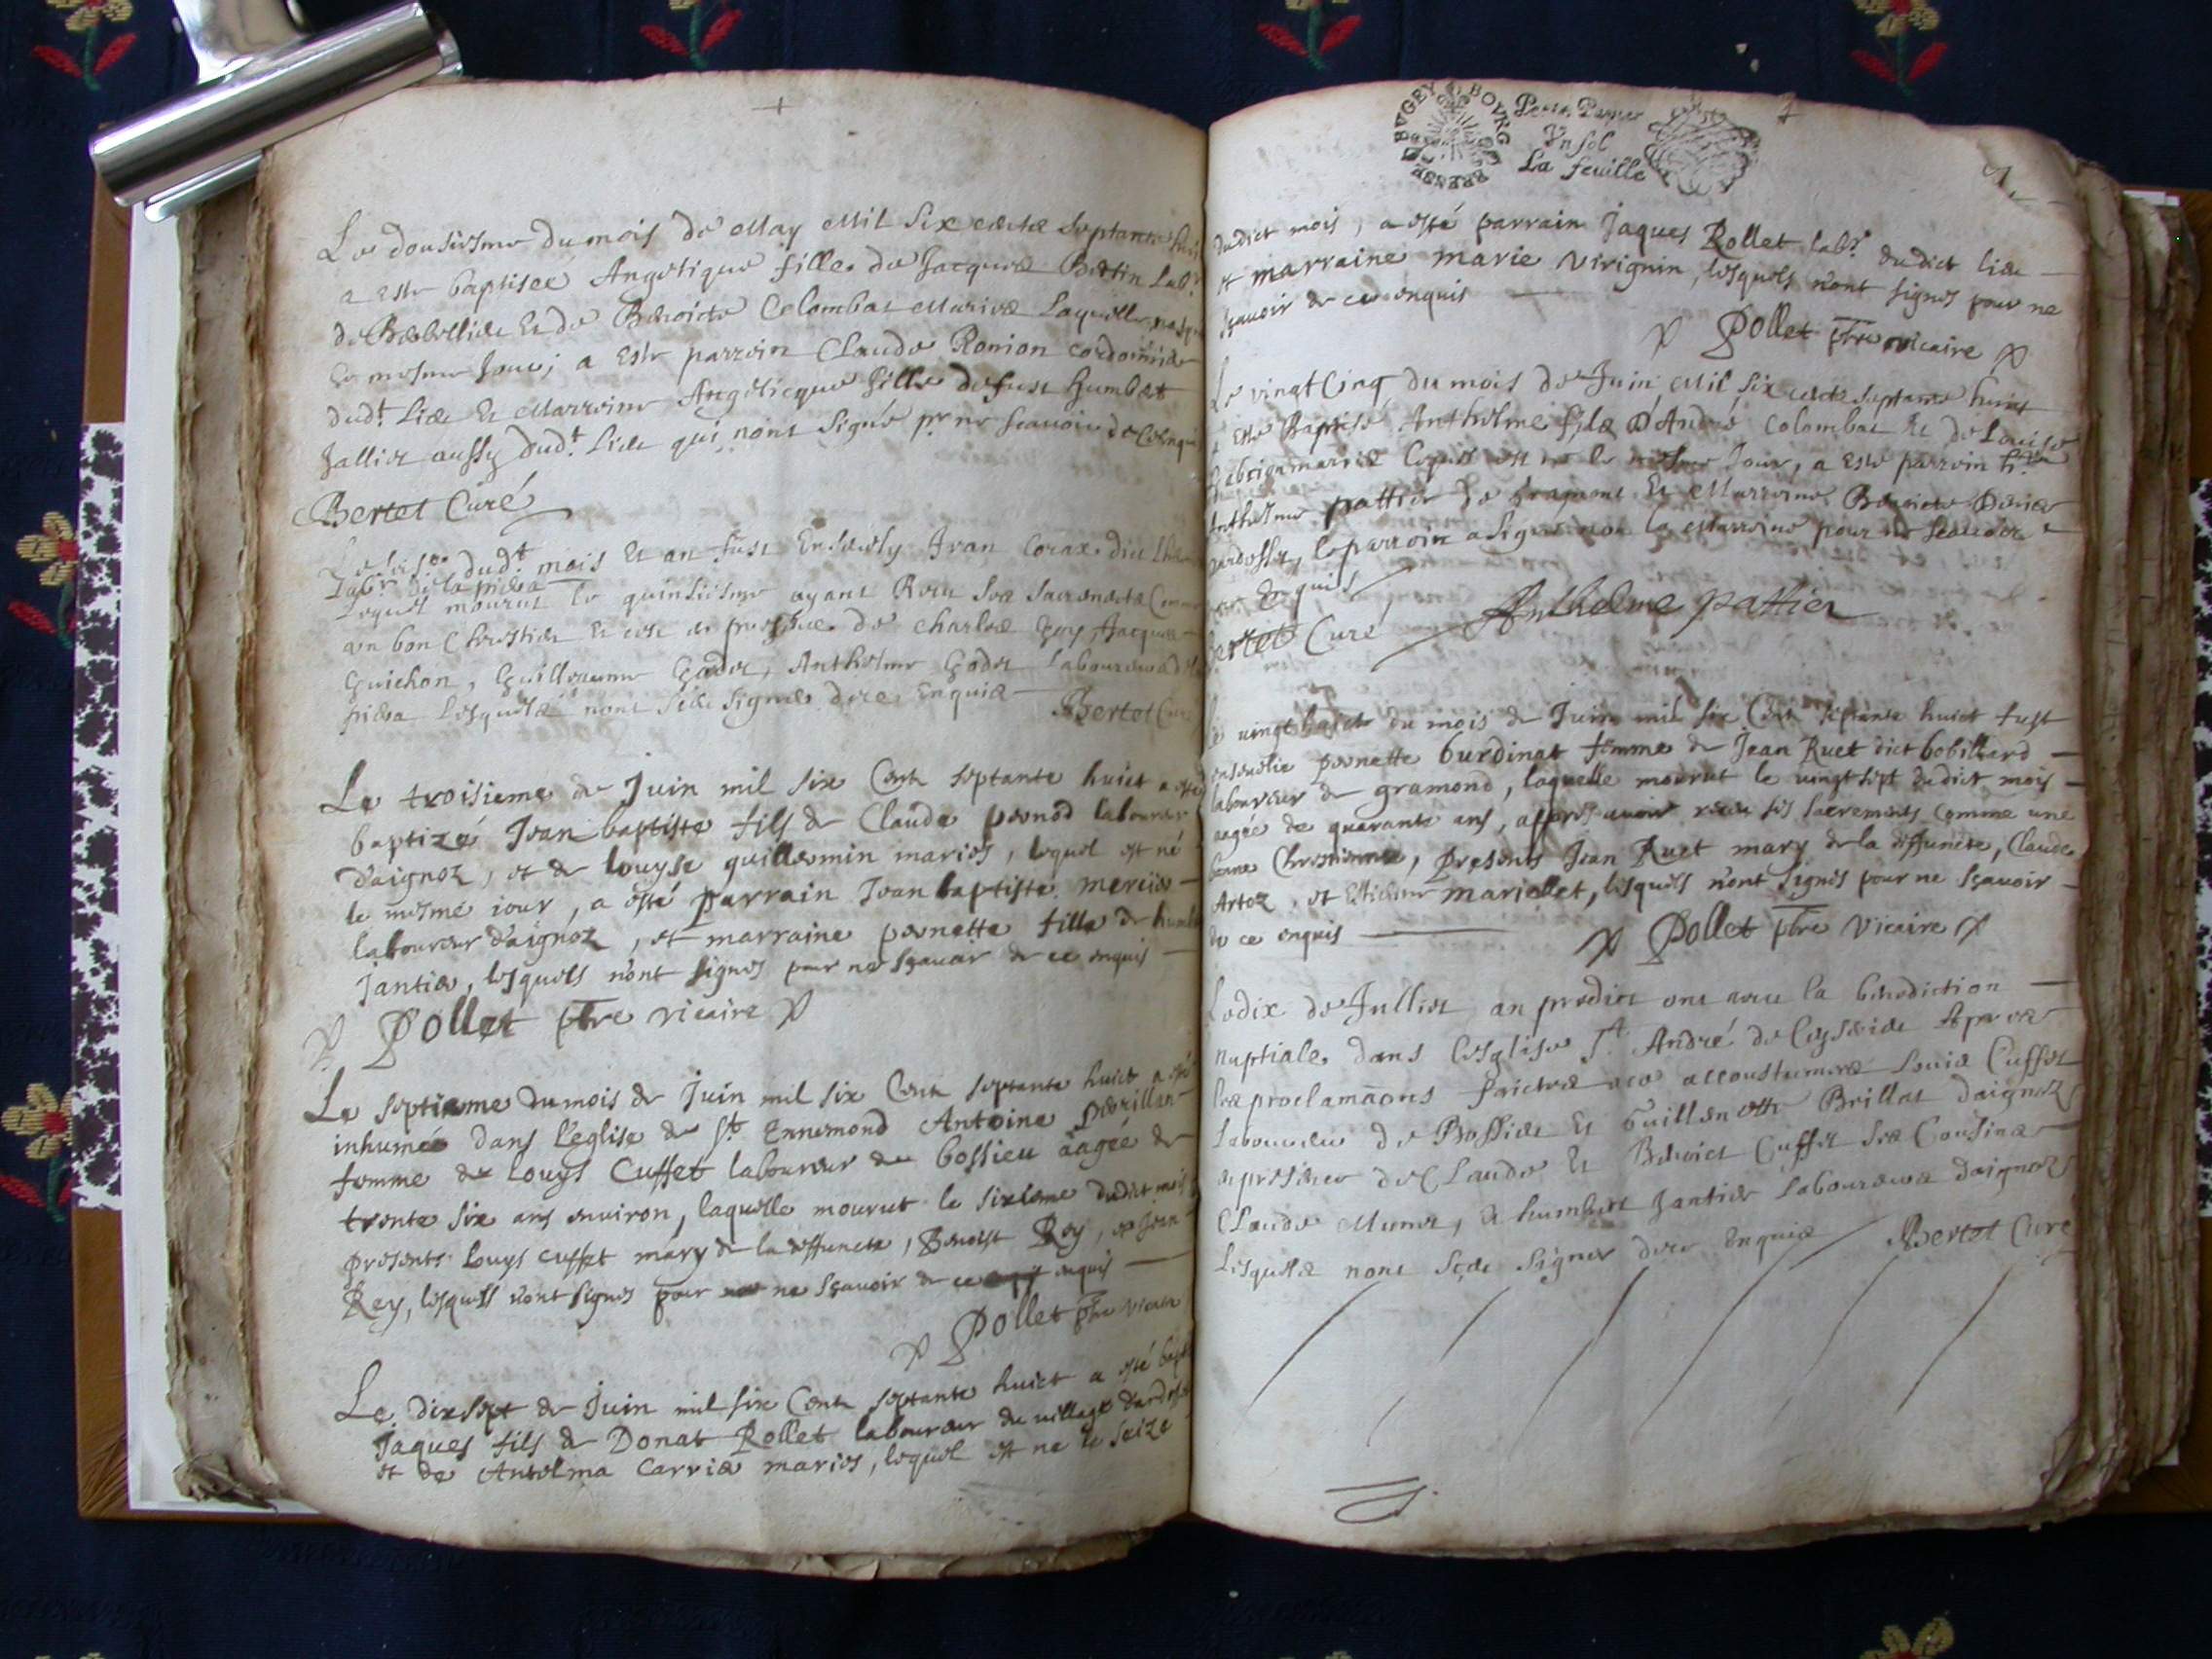 Le dousiesme du mois de May Mil Six centz septante huic
a este baptiseé Angelique fille de Jacques Bertin Lab.r
de et de Benoicte Colombat Mariez Laquelle
le mesme Jour; a este parrein Claude Ronion cordonnier
dud.t Lieu et Marreine Angelicque fille de fust humbert
Jallier aussy dud.t Lieu qui nont Signé pr ne scavoir de
Bertet Curé
Le dud.t mois et an fust Ensevely Jean Corax dict
Lab.r de la
lequel mourut le quinsiesme ayant Receu ses sacrementz Comme
un bon Chrestien et ce en presence de Charles Goy, Jacques
Guichon, Guilleaume Godet, Anthelme Godet Laboureurs
lesquelz nont sceu signer de ce Enquis
Bertet Curé
Le troisieme de Juin mil six Cent septante huict a esté
baptizé Jean baptiste fils de Claude pernod laboureur
d'aignoz, et de louyse guillermin mariés, lequel est né
le mesme iour, a esté parrain Jean baptiste mercier
laboureur d'aignoz, et marraine pernette fille de
Jantier, lesquels n'ont signés pour ne sçavoir de ce enquis
Pollet ptre vicaire
Le septieme du mois de Juin mil six Cent septante huict a esté
inhumeé dans l'eglise de St Ennemond Antoine
femme de Louys Cuffet laboureur de bossieu aageé de
trente six ans environ, laquelle mourut le sixieme dudict mois
presents Louys Cuffet mary de la deffuncte, Benoist Rey, et Jean
Rey, lesquels n'ont signés pour ne sçavoir de ce enquis
Pollet ptre vicaire
Le dixsept de Juin mil six Cent septante huict a esté
Jaques fils de Donat Rollet laboureur du village
et de Antelma Carrier mariés, lequel est né le seize
BUGEY BOURG BRESSE
Un sol
La feuille
dudict mois, a esté parrain Jaques Rollet lab.r dudict lieu
et marraine marie virignin, lesquels n'ont signés pour ne
sçavoir de ce enquis
Pollet ptre vicaire
Le vingt Cinq du mois de Juin Mil six centz septante huict
a esté Baptisé Anthelme filz D'André Colombat et de Louise
mariez lequel est né le mesme Jour, a este parrein
Anthelme pattier de gramont et Marreine Benoicte
le parrein a signé non la Marreine pour ne scavoir
de ce Enquis
Bertet Curé
Anthelme pattier
Le vingt huict du mois de Juin mil six Cent septante huict fust
ensevelie pernette burdinat femme de Jean Ruet dict bobilliard
laboureur de gramond, laquelle mourut le vingtsept dudict mois
aageé de quarante ans, appres avoir receu ses sacrements comme une
bonne Chrestienne, presents Jean Ruet mary de la deffuncte, Claude
Artoz, et Estienne mariellet, lesquels n'ont signés pour ne sçavoir
de ce enquis
Pollet ptre Vicaire
Le dix de Julliet an predict ont receu la benediction
nuptiale dans lesglise St André de Ceyserieu Apres
les proclamaons faictes acoustumeez Louis Cuffet
Laboureur de Bossieu et Guillemette Brillat daignoz
en presence de Claude et Benoict Cuffet ses Cousins
Claude Munet, et humbert Jantier Laboureurs daignoz
Lesquelz nont sceu signer de ce Enquis
Bertet Curé